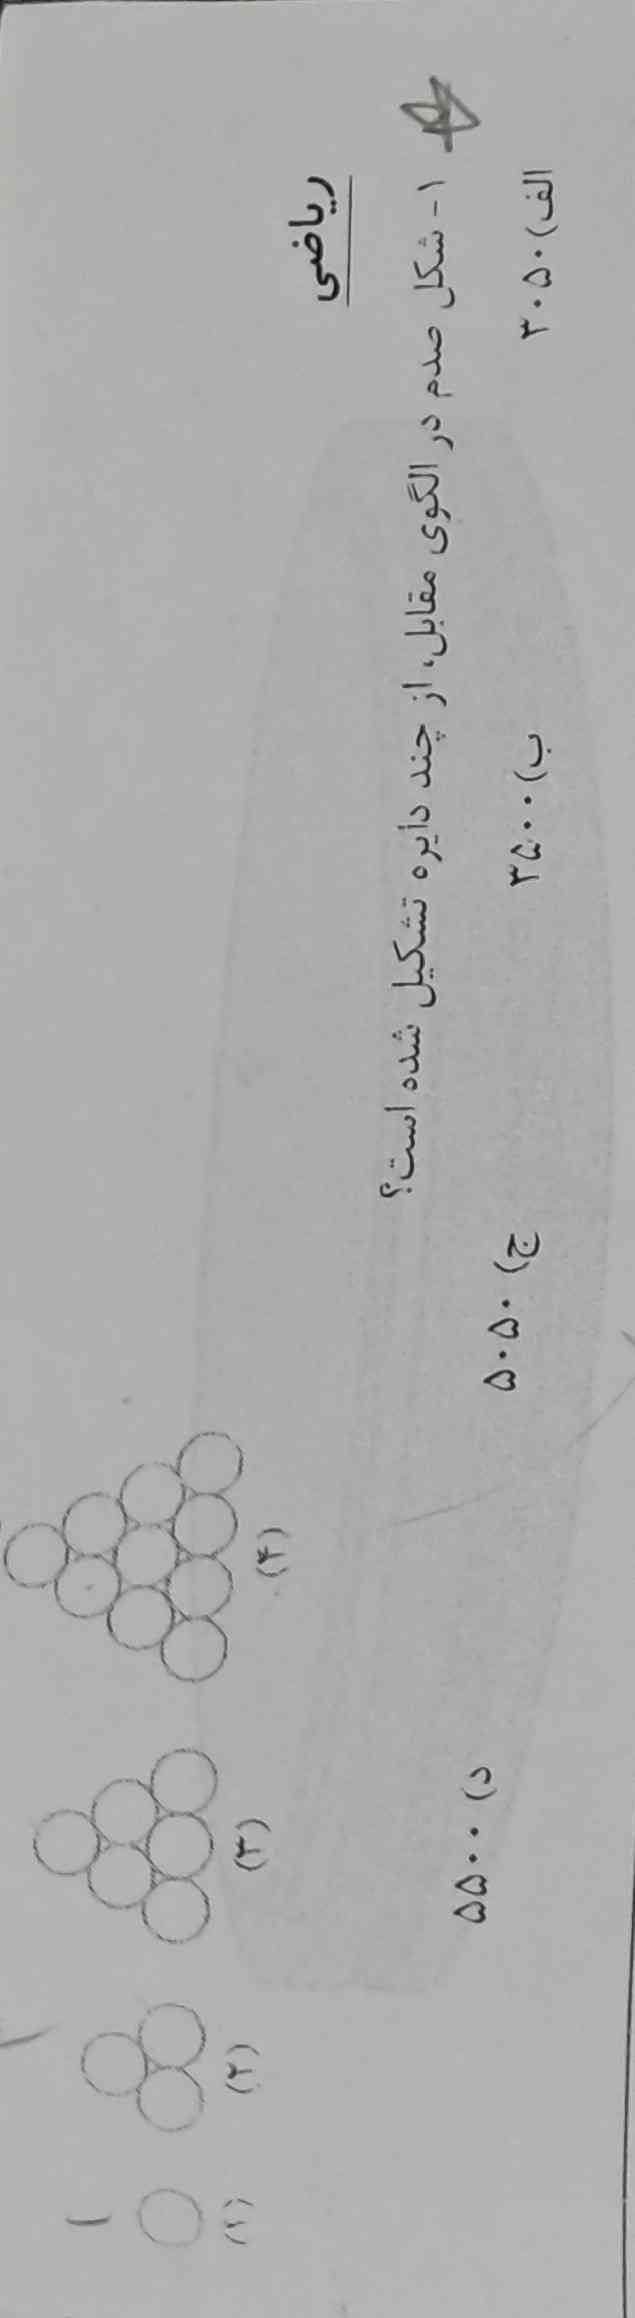 ریاضی
۱- شکل صدم در الگوی مقابل، از چند دایره تشکیل شده است؟
الف) ۳۰۵۰ ب) ۳۵۰۰ ج) ۵۰۵۰ د) ۵۵۰۰
(۱) (۲) (۳) (۴)
۱